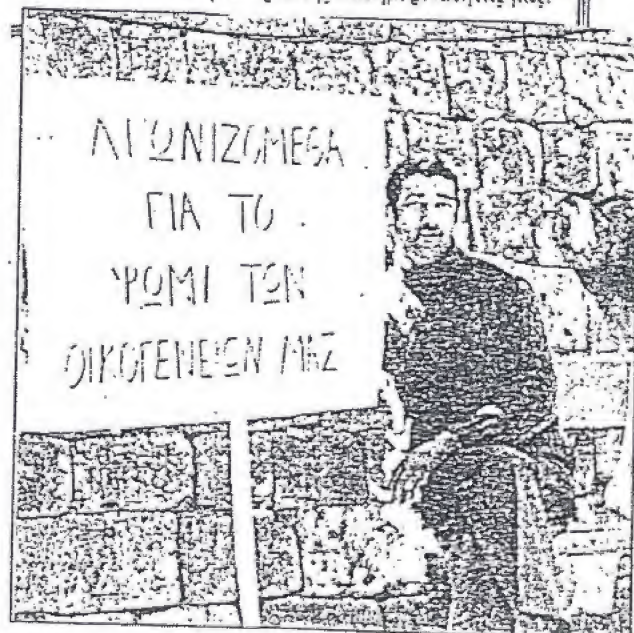 ΑΓΩΝΙΖΟΜΕΘΑ
ΓΙΑ ΤΟ
ΨΩΜΙ ΤΩΝ
ΟΙΚΟΓΕΝΕΙΩΝ ΜΑΣ